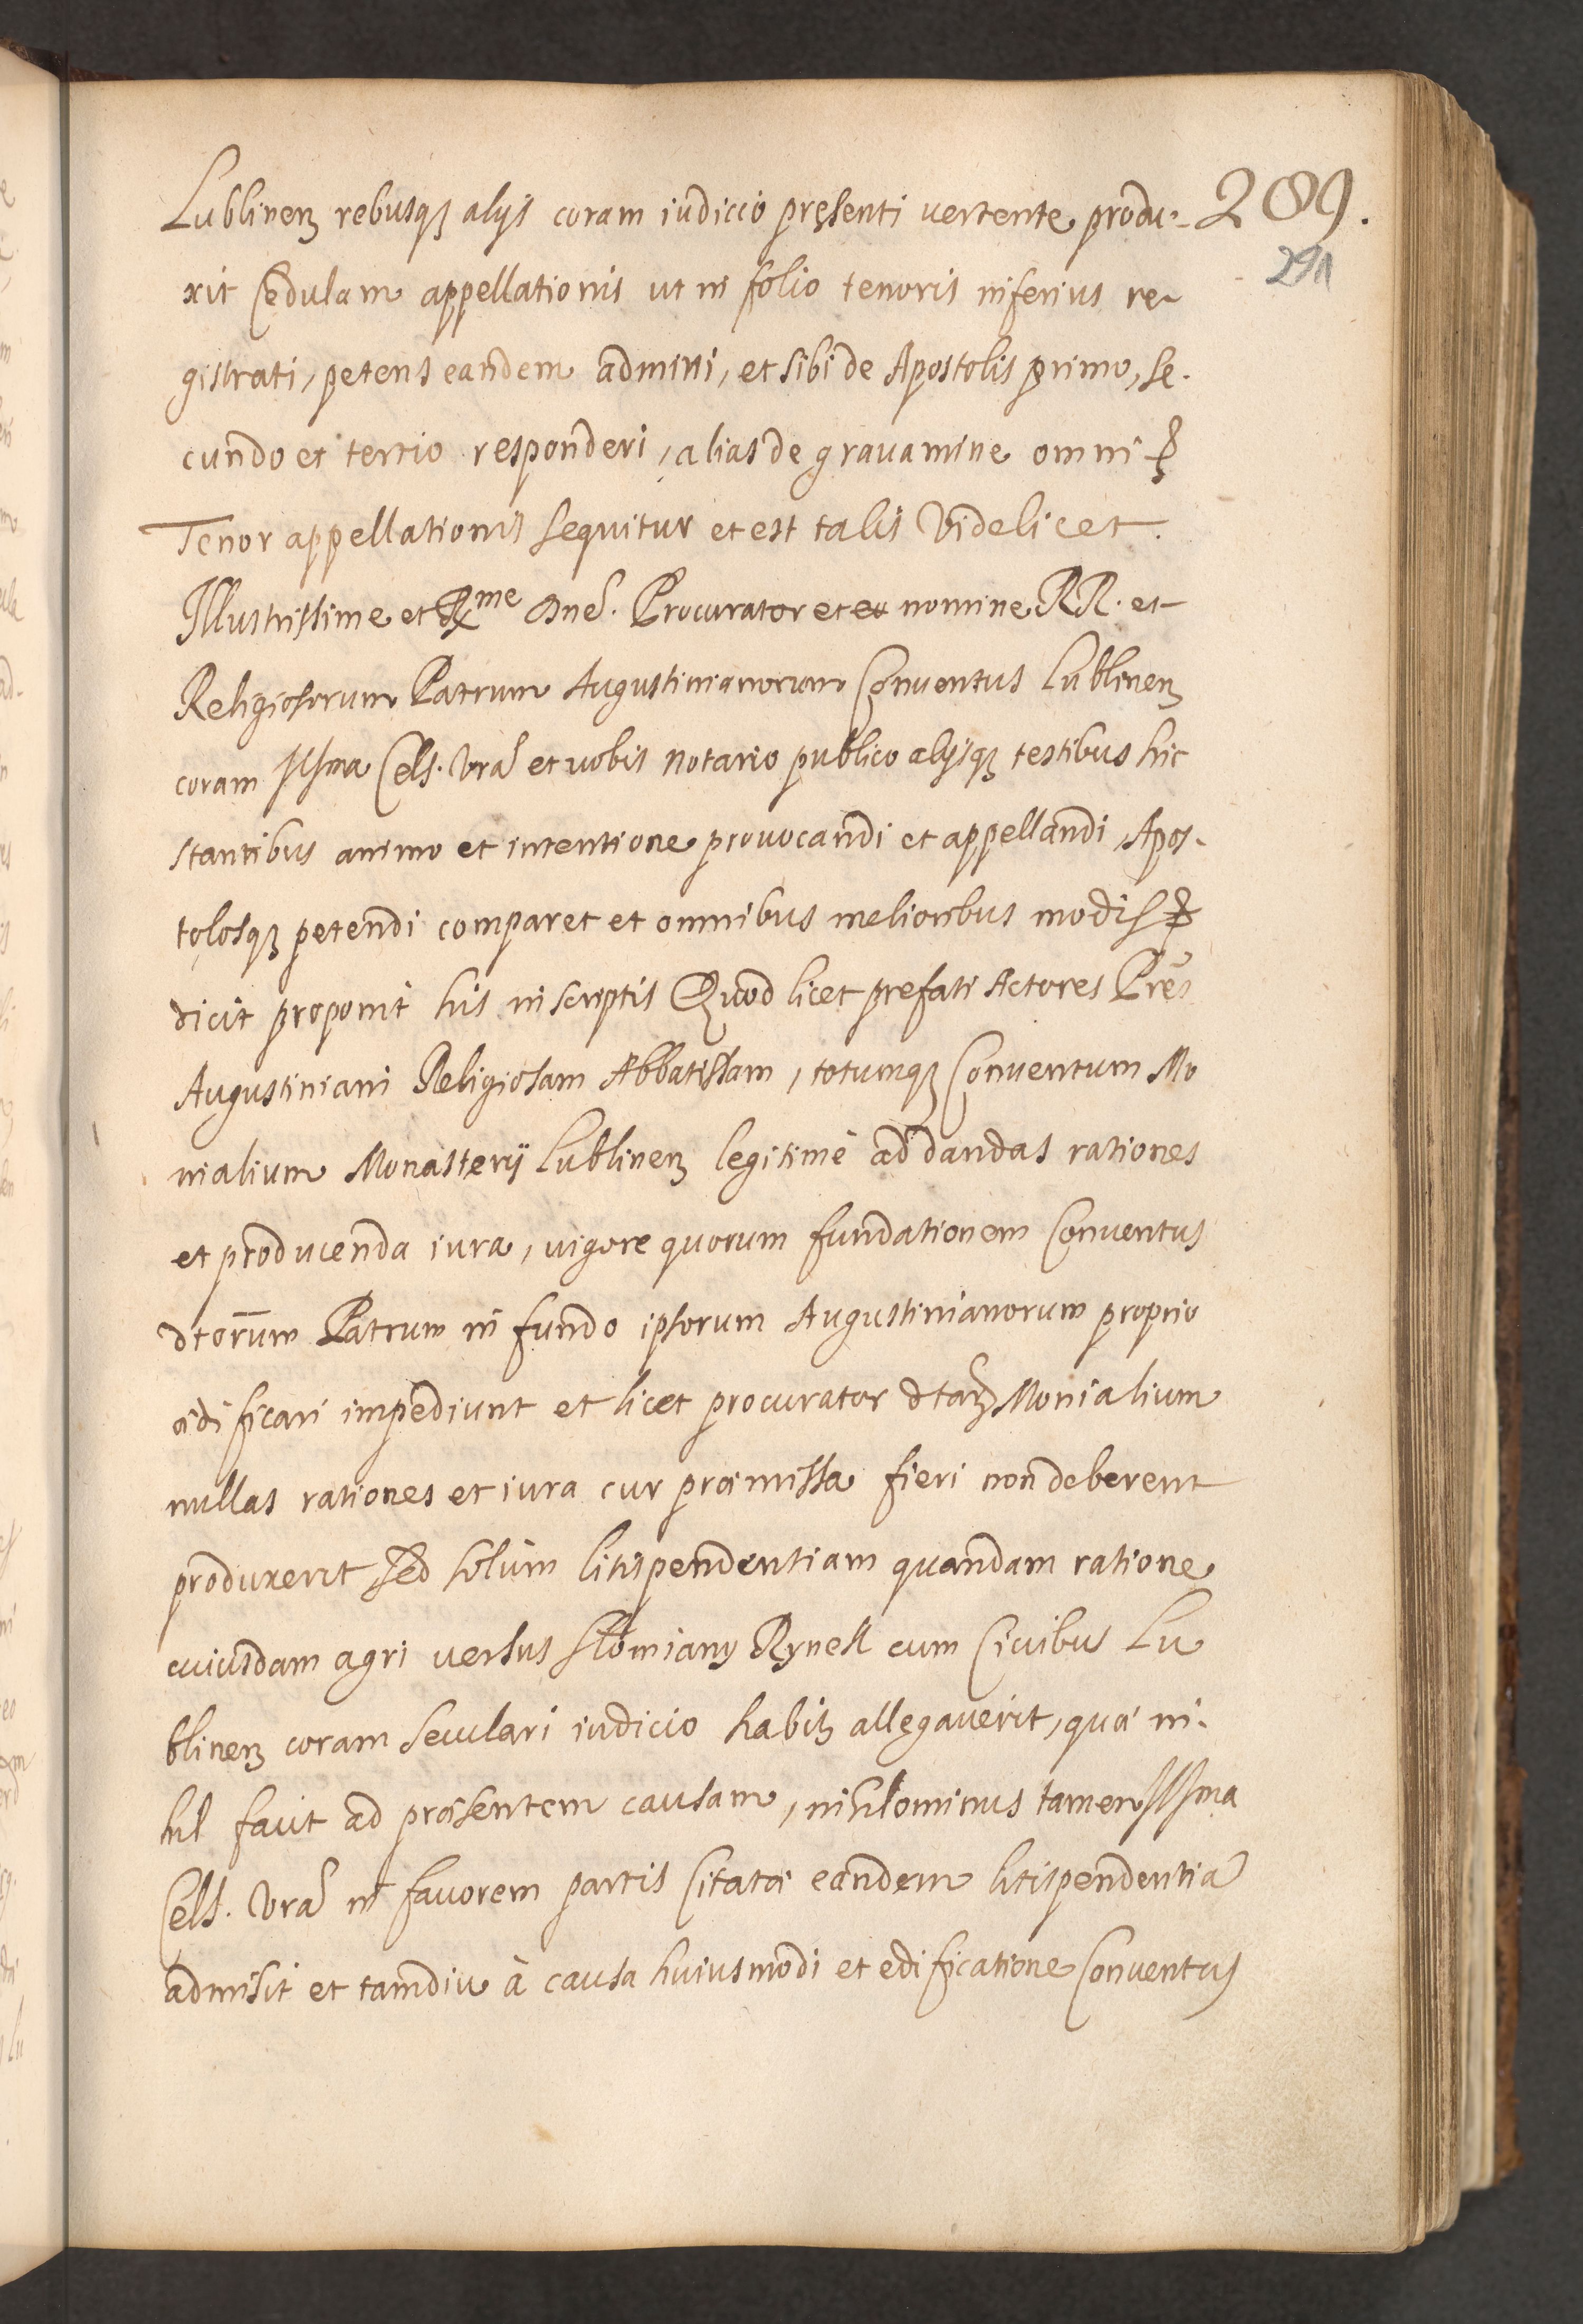 Lublinen rebusq alijs coram iudicio pręsenti uertente produ- 289.
xit Cedulam appellationis ut in folio tenoris inferius re- 291
gistrati, petens eandem admitti, et sibi de Apostolis primo, se-
cundo et tertio responderi, alias de grauamine omni
Tenor appellationis sequitur et est talis Videlicet.
Illustrissime et Rme Dne. Procurator et eo nomine RR. et
Religiosorum Patrum Augustinianorum Conuentus Lublinen
coram Illma Cels. Vra et uobis Notario publico alijsq testibus hic
stantibus animo et intentione prouocandi et appellandi, Apos-
tolosq petendi comparet et omnibus melioribus modis
dicit proponit his in scriptis Quod licet prefati Actores Pres
Augustiniani Religiosam Abbatissam, totumq Conuentum Mo
nialium Monasterij Lublinen legitimè ad dandas rationes
et producenda iura, uigore quorum fundationem Conuentus
dtorum Patrum in fundo ipsorum Augustinianorum proprio
ædificari impediunt et licet procurator dtarum Monialium
nullas rationes et iura cur præmissa fieri non deberent
produxerit sed solùm litispendentiam quandam ratione
cuiusdam agri uersus Słomiany Rynek cum Ciuibus Lu
blinen coram seculari iudicio habitam allegauerit, quæ ni-
hil facit ad præsentem causam, nihilominus tamen Illma
Cels. Vra in fauorem partis Citatæ eandem litispendentiã
admisit et tamdiu à causa huiusmodi et edificatione Conuentus